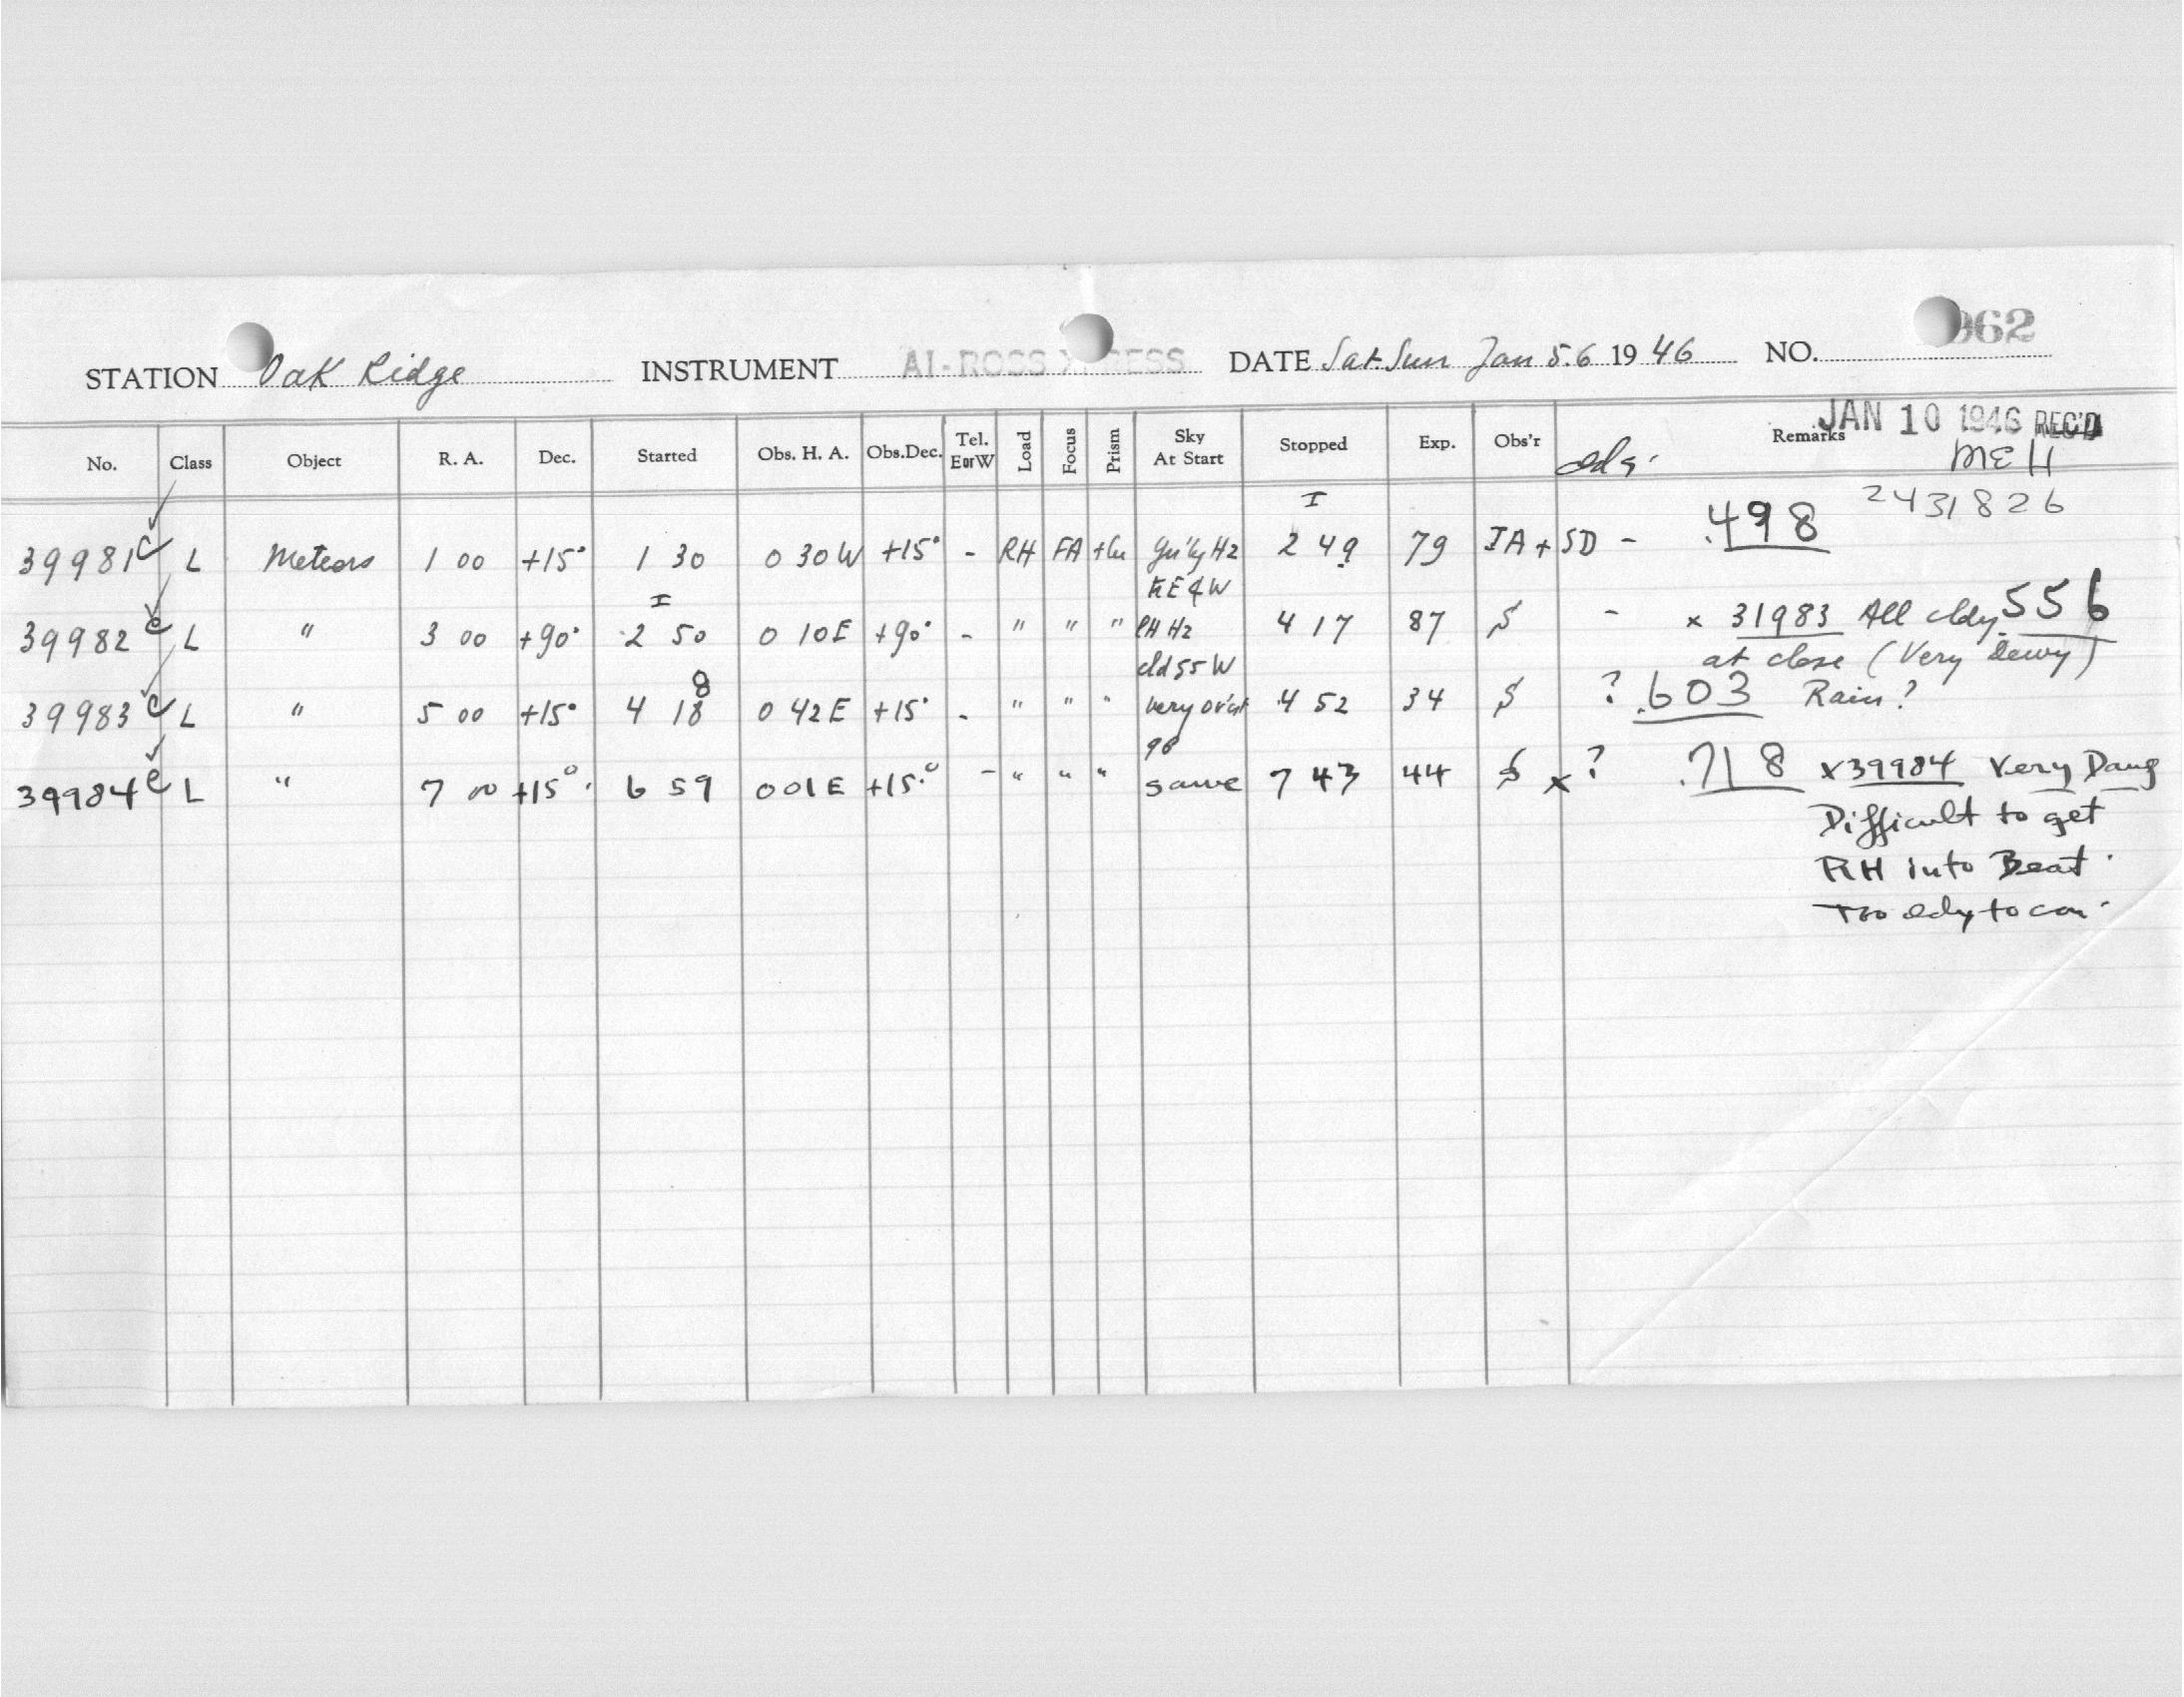 STATION Oak Ridge INSTRUMENT AI-ROSS DATE Sat. Sun Jan 5.6 1946 NO. 362
JAN 10 1946 REC'D
No. Class Object R. A. Dec. Started Obs. H. A. Obs.Dec. Tel. E or W Load Focus Prism Sky At Start Stopped Exp. Obs'r Remarks
MEH
I 2431826
39981 c L Meteors 1 00 +15° 1 30 0 30 W +15° - RH FA Hz 2 49 79 IA + SD - .498
E & W
I
39982 c L " 3 00 +90° 2 50 0 10 E +90° - " " " Hz 4 17 87 $ - x 31983 All cldy .556
cld 55 W at close (Very Dewy)
8
39983 c L " 5 00 +15° 4 18 0 42 E +15° - " " " very 4 52 34 $ ? .603 Rain?
39984 c L " 7 00 +15° 6 59 0 01 E +15° - " " " same 7 43 44 $ x ? .718 x 39984 Very Dang
Difficult to get
RH into Beat.
Too cldy to con.